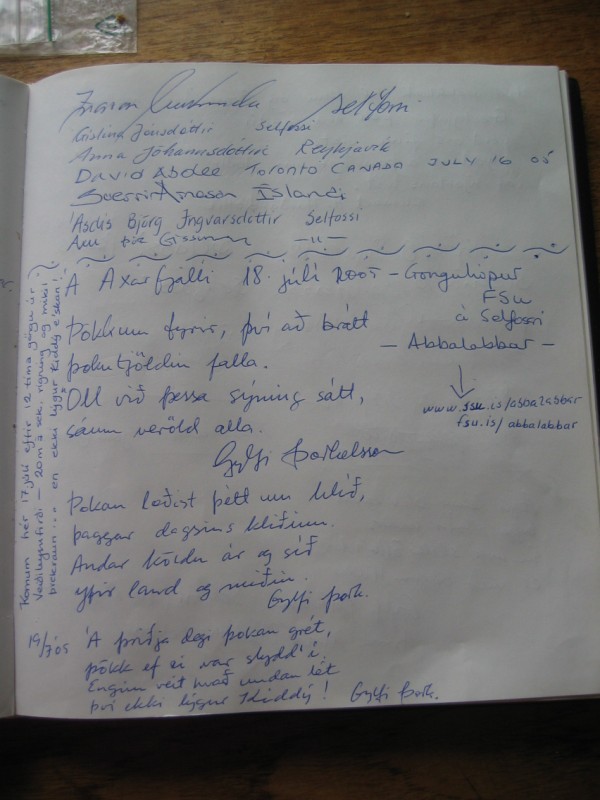 Selfossi
Kristína Jónsdóttir Selfossi
Anna Jóhannsdóttir Reykjavík
DAVID ABDEE TORONTO CANADA JULY 16 05
Sverrir Árnason Íslandi
Ásdís Björg Ingvarsdóttir Selfossi
—"—
Á Axarfjalli 18. júlí 2005 – Gönguhópur
FSu
á Selfossi
– Abbalabbar –
www.fsu.is/abbalabbar
fsu.is/abbalabbar
Þökkum fyrir, því að brátt
þokutjöldin falla.
Öll við þessa sýning sátt,
sáum veröld alla.
Gylfi Þorkelsson
Þokan loðist þétt um hlíð,
þaggar dagsins kliðinn.
Andar köldu ár og síð
yfir land og miðin.
Gylfi Þork.
19/7 05
Á þriðja degi þokan grét,
þökk ef ei var skydd'í.
Enginn veit hvað undan lét
því ekki lýgur Kiddý! Gylfi Þork.
Komum hér 17. júlí eftir 12 tíma göngu úr
Veiðileysufirði – 20 m á sek, rigning og mikil
þrekraun... en ekki lýgur Kiddý e'skan!